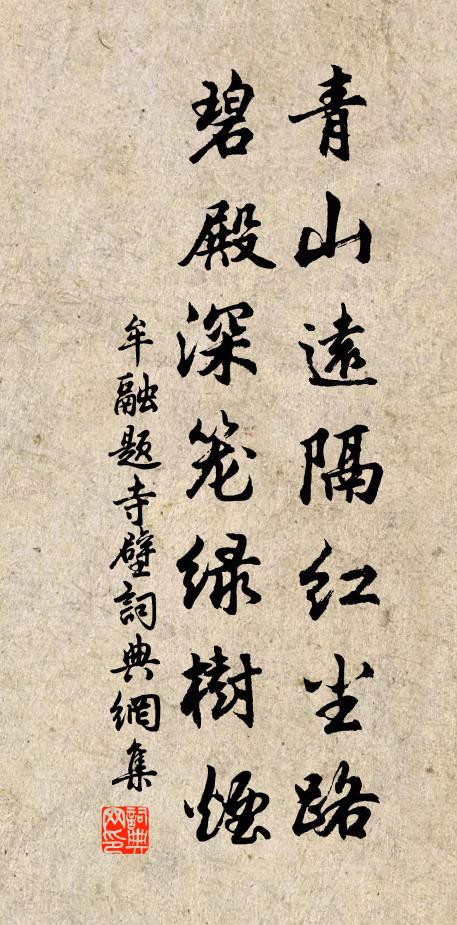 青山遠隔红尘路
碧殿深笼绿樹煙
牟融题寺壁詞典網集
詞典网印